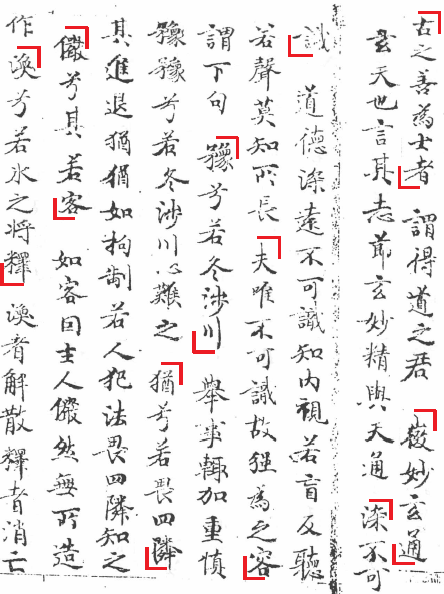 古之善為士者 謂得道之君 微妙玄通
玄天也言其志節玄妙精與天通 深不可
識 道德深遠不可識知內視若盲反聽
若聲莫知所長 夫唯不可識故強為之容
謂下句 豫兮若冬涉川 舉事輙加重慎
豫豫兮若冬涉川心難之 猶兮若畏四隣
其進退猶猶如拘制若人犯法畏四隣知之
儼兮其若客 如客因主人儼然無所造
作 渙兮若氷之將釋 渙者解散釋者消亡